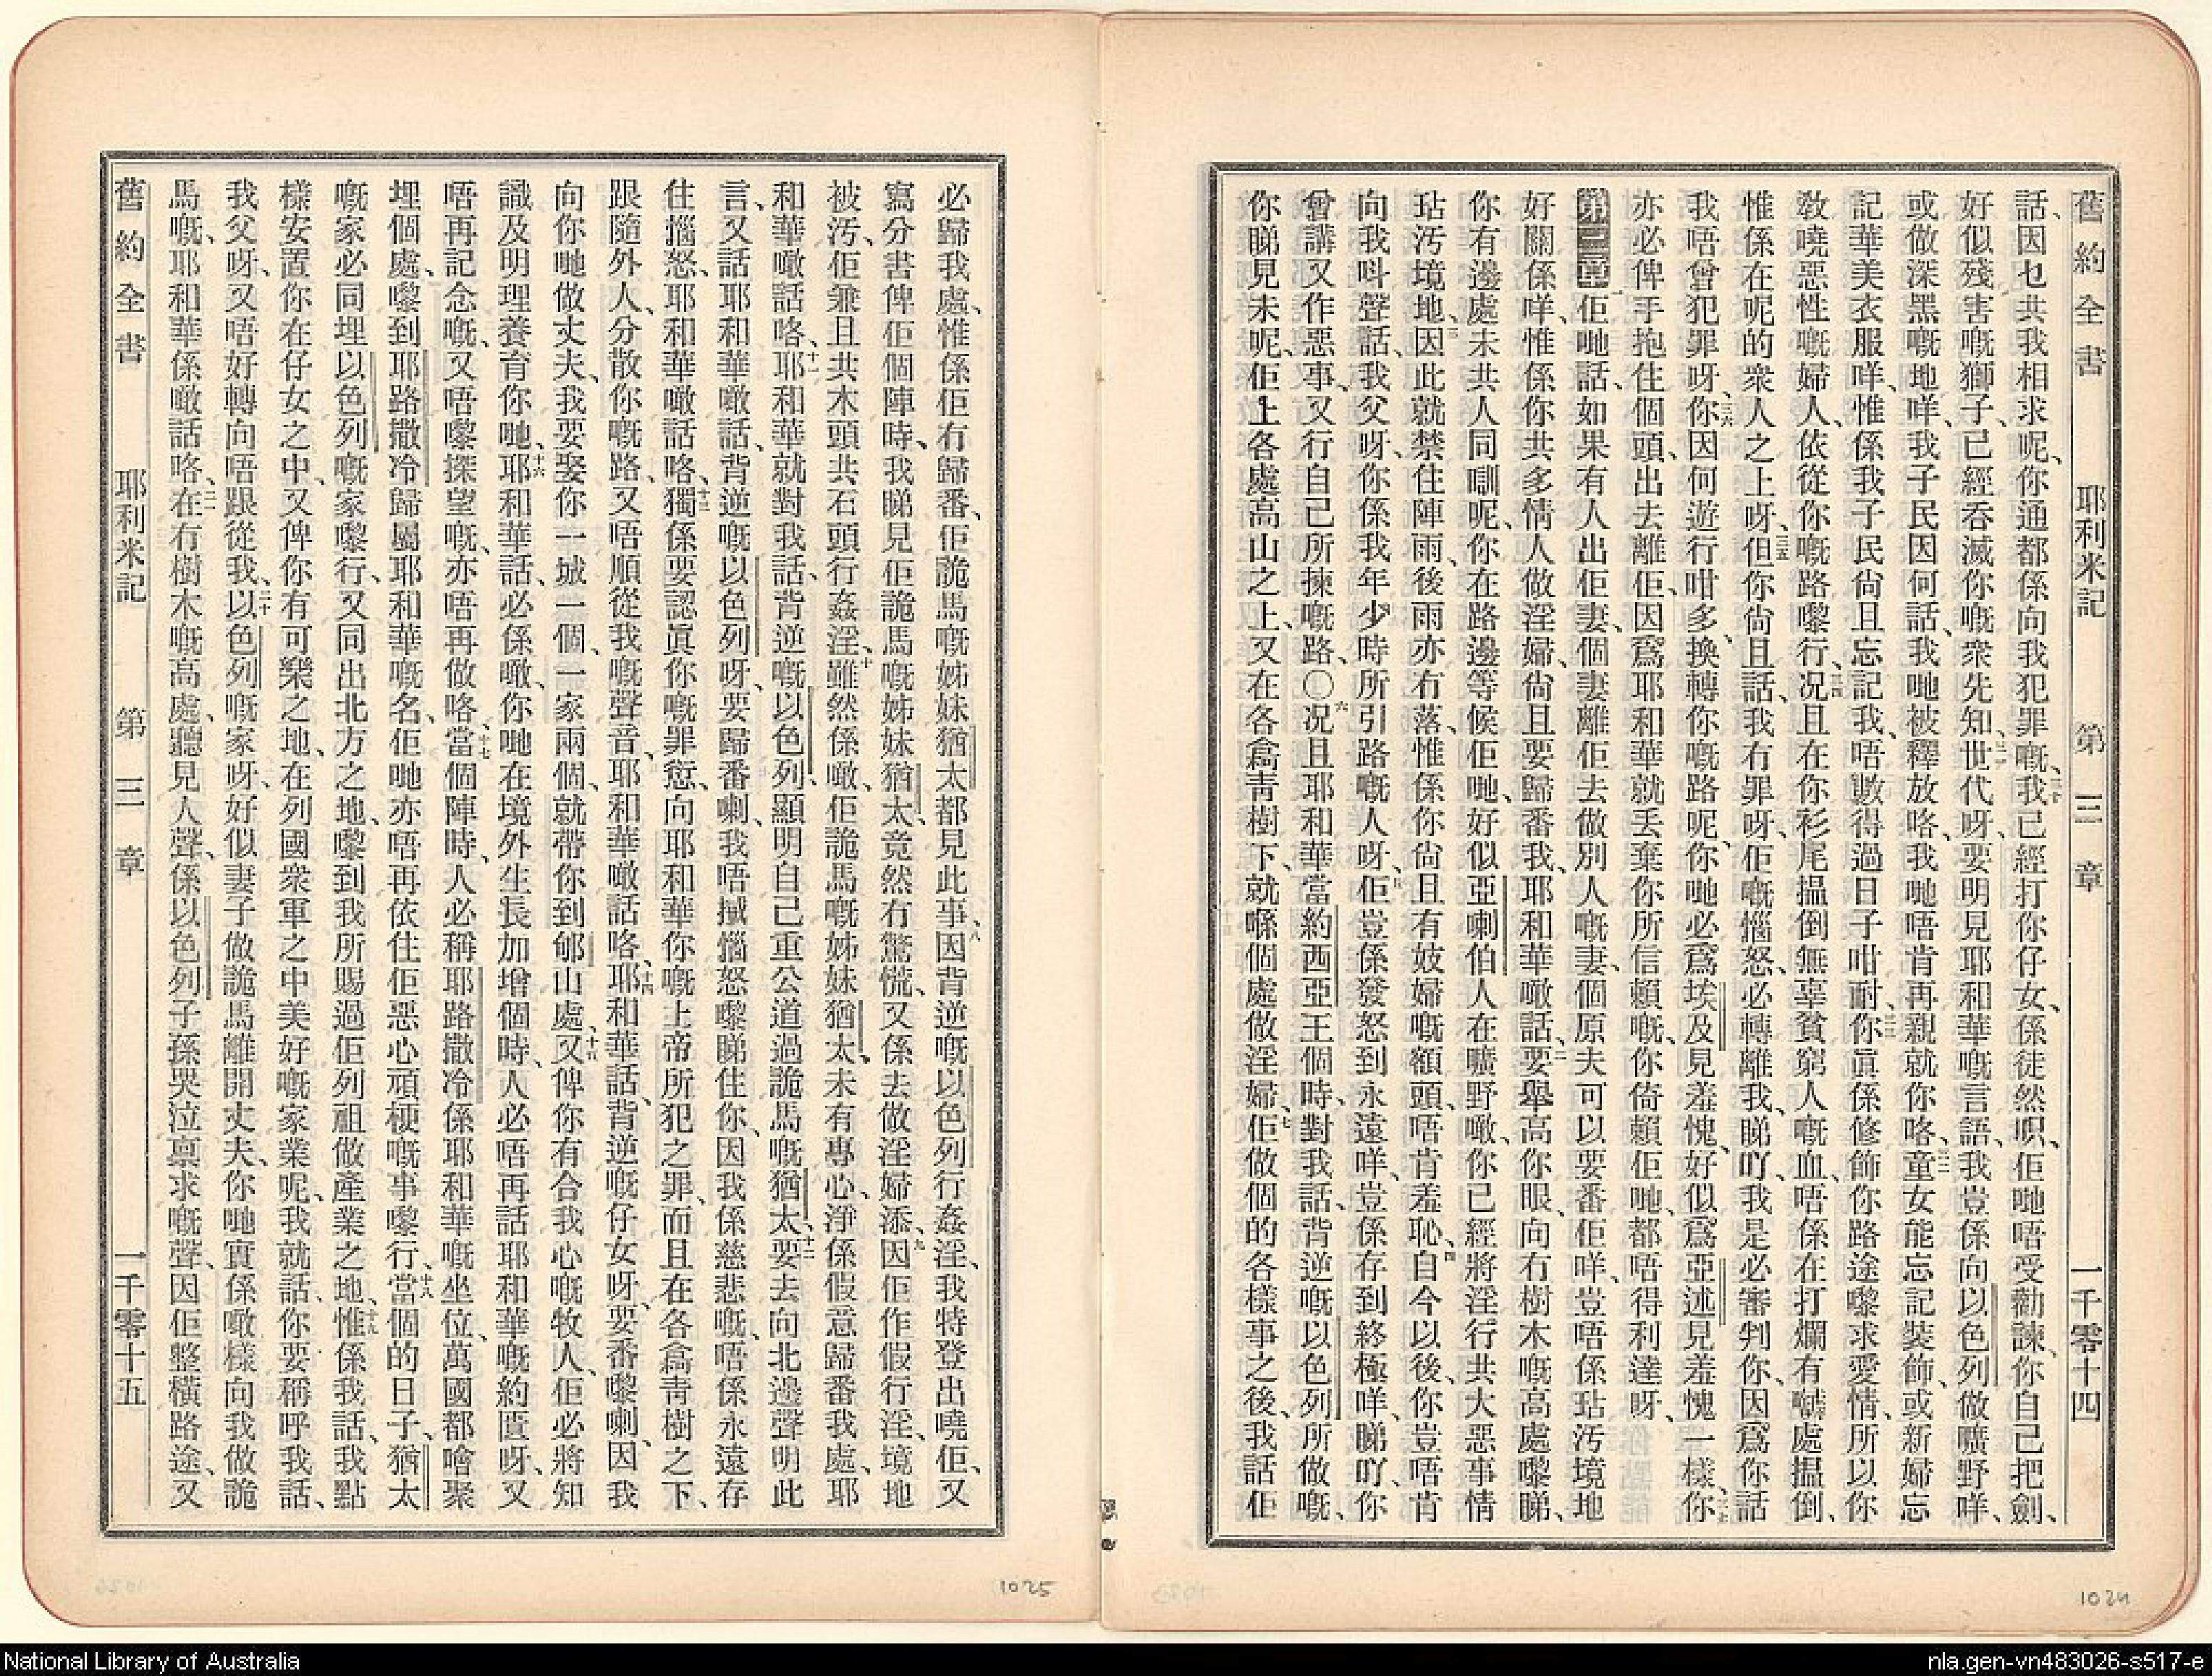 舊約全書 耶利米記 第三章 一千零十四
話、因乜共我相求呢、你通都係向我犯罪嘅、三十我已經打你仔女、係徒然呮、佢哋唔受勸諫、你自己把劍、
好似殘害嘅獅子、已經吞滅你嘅衆先知、三一世代呀、要明見耶和華嘅言語、我豈係向以色列做曠野咩、
或做深黑嘅地咩、我子民因何話、我哋被釋放咯、我哋唔肯再親就你咯、三二童女能忘記裝飾、或新婦忘
記華美衣服咩、惟係我子民尙且忘記我、唔數得過日子咁耐、三三你眞係修飾你路途嚟求愛情、所以你
教嘵惡性嘅婦人、依從你嘅路嚟行、三四况且在你衫尾搵倒無辜貧窮人嘅血、唔係在打爛有處搵倒、
惟係在呢的衆人之上呀、三五但你尙且話、我有罪呀、佢嘅惱怒、必轉離我、睇吖、我是必審判你、因爲你話
我唔曾犯罪呀、三六你因何遊行咁多、換轉你嘅路呢、你哋必爲埃及見羞愧、好似爲亞述見羞愧一樣、三七你
亦必俾手抱住個頭出去離佢、因爲耶和華就丢棄你所信賴嘅、你倚賴佢哋、都唔得利達呀、
第三章一佢哋話、如果有人出佢妻、個妻離佢去做別人嘅妻、個原夫可以要番佢咩、豈唔係玷汚境地
好關係咩、惟係你共多情人做淫婦、尙且要歸番我、耶和華噉話、二要舉高你眼、向冇樹木嘅高處嚟睇、
你有邊處未共人同瞓呢、你在路邊等候佢哋、好似亞喇伯人在曠野噉、你已經將淫行共大惡事情
玷汚境地、三因此就禁住陣雨、後雨亦冇落、惟係你尙且有妓婦嘅額頭、唔肯羞恥、四自今以後、你豈唔肯
向我呌聲話、我父呀、你係我年少時所引路嘅人呀、五佢豈係發怒到永遠咩、豈係存到終極咩、睇吖、你
曾講又作惡事、又行自己所揀嘅路、〇六况且耶和華當約西亞王個時、對我話、背逆嘅以色列所做嘅、
你睇見未呢、佢上各處高山之上、又在各樖靑樹下、就喺個處做淫婦、七佢做個的各樣事之後、我話佢
必歸我處、惟係佢冇歸番、佢詭馬嘅姊妹猶太都見此事、八因背逆嘅以色列行姦淫、我特登出嘵佢、又
寫分書俾佢個陣時、我睇見佢詭馬嘅姊妹猶太、竟然冇驚慌、又係去做淫婦添、九因佢作假行淫、境地
被汚、佢兼且共木頭共石頭行姦淫、十雖然係噉、佢詭馬嘅姊妹猶太、未有專心、淨係假意歸番我處、耶
和華噉話咯、十一耶和華就對我話、背逆嘅以色列、顯明自己重公道過詭馬嘅猶太、十二要去向北邊聲明此
言、又話耶和華噉話、背逆嘅以色列呀、要歸番喇、我唔搣惱怒嚟睇住你、因我係慈悲嘅、唔係永遠存
住惱怒、耶和華噉話咯、十三獨係要認眞你嘅罪愆、向耶和華你嘅上帝所犯之罪、而且在各樖靑樹之下、
跟隨外人、分散你嘅路、又唔順從我嘅聲音、耶和華噉話咯、十四耶和華話、背逆嘅仔女呀、要番嚟喇、因我
向你哋做丈夫、我要娶你一城一個、一家兩個、就帶你到郇山處、十五又俾你有合我心嘅牧人、佢必將知
識及明理養育你哋、十六耶和華話、必係噉、你哋在境外生長加增個時、人必唔再話耶和華嘅約匱呀、又
唔再記念嘅、又唔嚟探望嘅、亦唔再做咯、十七當個陣時、人必稱耶路撒冷係耶和華嘅坐位、萬國都噲聚
埋個處、嚟到耶路撒冷歸屬耶和華嘅名、佢哋亦唔再依住佢惡心頑梗嘅事嚟行、十八當個的日子、猶太
嘅家必同埋以色列嘅家嚟行、又同出北方之地、嚟到我所賜過佢列祖做產業之地、十九惟係我話、我點
樣安置你在仔女之中、又俾你有可樂之地、在列國衆軍之中美好嘅家業呢、我就話、你要稱呼我話、
我父呀、又唔好轉向唔跟從我、二十以色列嘅家呀、好似妻子做詭馬離開丈夫、你哋實係噉樣向我做詭
馬嘅、耶和華係噉話咯、二一在冇樹木嘅高處、聽見人聲、係以色列子孫哭泣禀求嘅聲、因佢整橫路途、又
舊約全書 耶利米記 第三章 一千零十五
1025
1024
National Library of Australia
nla.gen-vn483026-s517-e